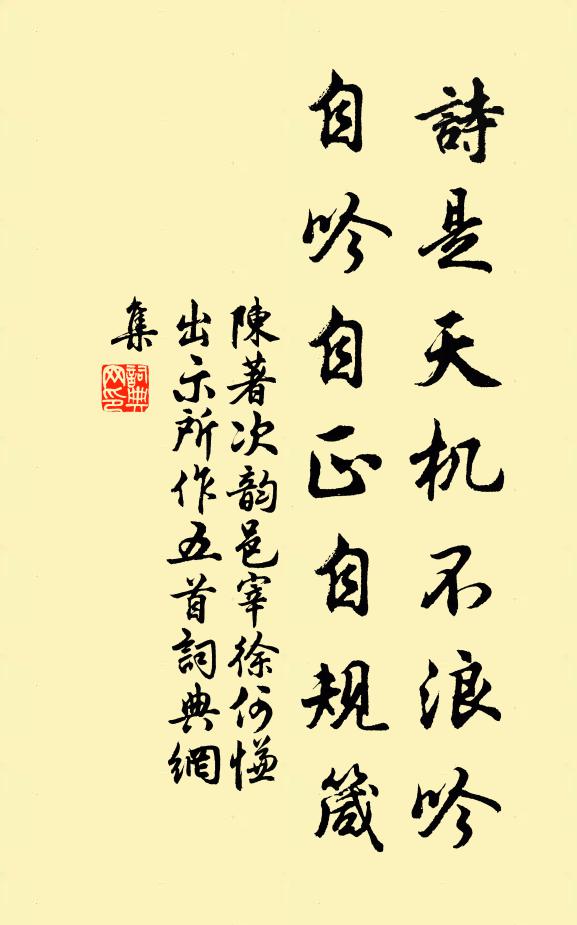 詩是天机不浪吟
自吟自正自規箴
陳著次韵邑宰徐何慊
出示所作五首詞典網
集
詞典网印